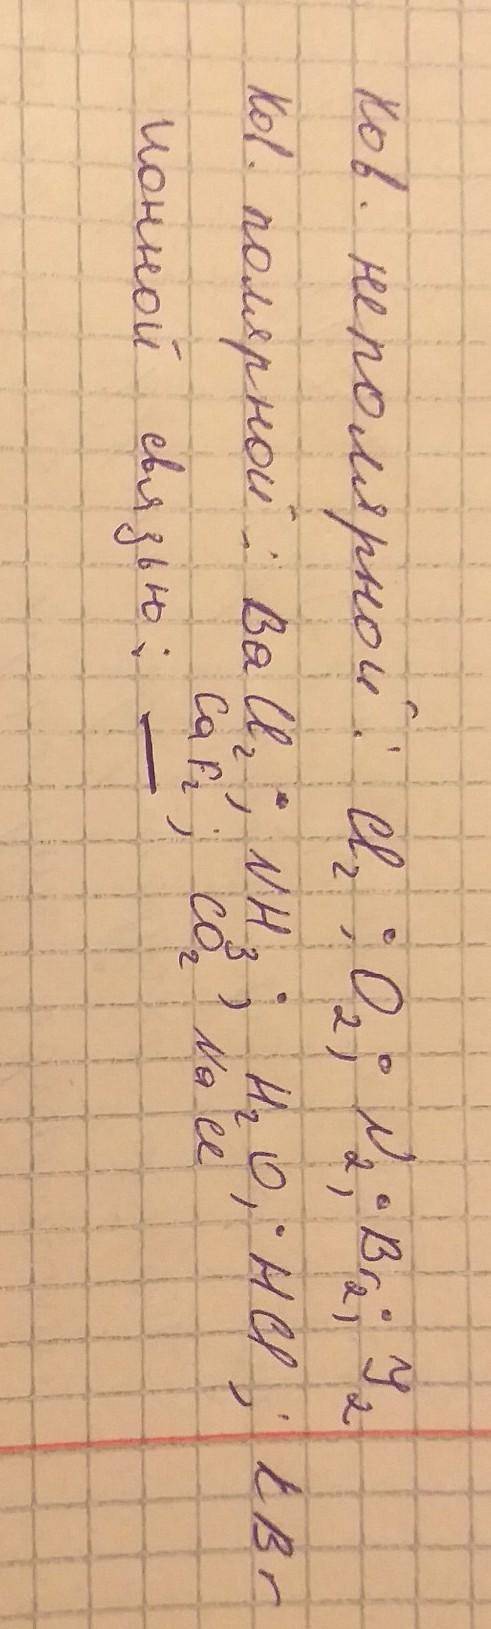 Ков. неполярной: Cl₂; O₂; N₂; Br₂; У₂
Ков. полярной: BaCl₂; NH₃; H₂O; HCl; KBr
CaF₂; CO₂ NaCl
ионной связью: —